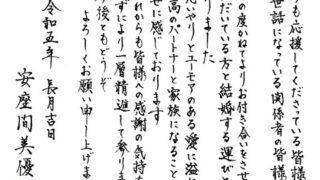 も応援してくださっている皆様
世話になっている関係者の皆様
の度かねてよりお付き合いをさせ
だいている方と結婚する運び
りました
いやりとユーモアのある愛に溢
高のパートナーと家族になること
せに感じております
れからも皆様への感謝の気持
ずにより一層精進して参りま
後ともどうぞ
よろしくお願い申し上げま
令和五年 長月吉日
安座間美優